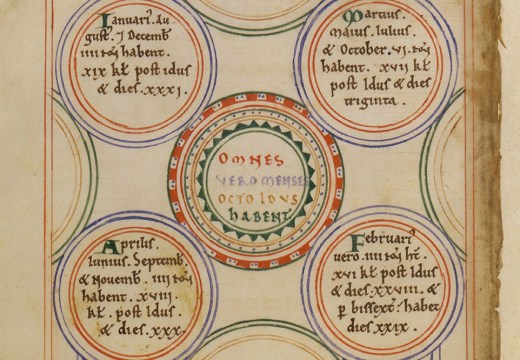 Ianuari᾽. Au
gust᾽. ⁊ Decemb᾽
iiii noñ habent.
xix kł post idus
& dies. xxxi.
Martius.
Maius. Iulius.
& October. vi. noñ
habent. xvii kł
post Idus & dies
triginta.
OMNES
VERO MENSES
OCTO IDVS
HABENT
Aprilis.
Iunius. Septemb᾽.
& Nouemb᾽. iiii noñ
habent. xviii
kł. post Idus.
& dies. xxx.
Februari᾽
uero. iiii noñ hñt.
xvi kł post Idus
& dies. xxviii. &
ꝑ bissext᾽. habet
dies xxix.